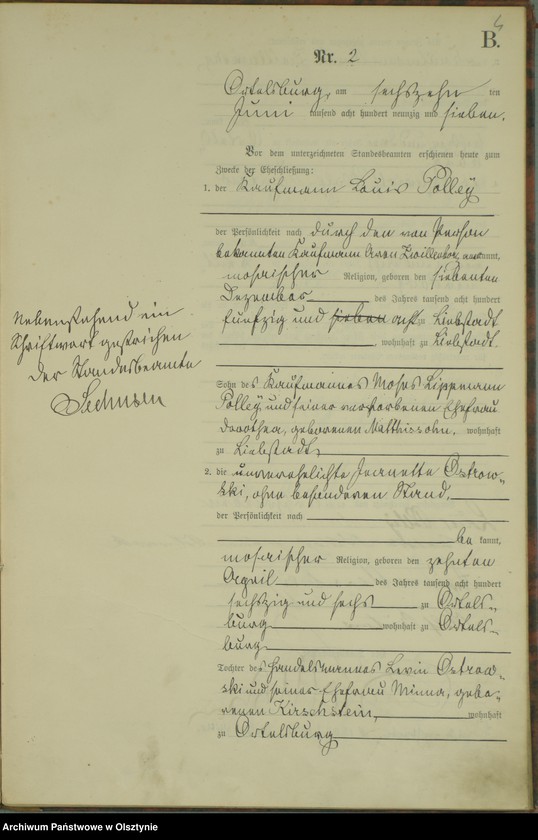 4
B.
Nr. 2
Ortelsburg, am sechszehn ten
Juni tausend acht hundert neunzig und sieben.
Vor dem unterzeichneten Standesbeamten erschienen heute zum
Zwecke der Eheschließung:
1. der Kaufmann Louis Polley
der Persönlichkeit nach durch den von Person
bekannten Kaufmann Aron kannt,
mosaischer Religion, geboren den siebenten
Dezember des Jahres tausend acht hundert
fünfzig und sieben acht zu Liebstadt
, wohnhaft zu Liebstadt.
Nebenstehend ein
Schriftwort gestrichen
Der Standesbeamte
Sohn des Kaufmannes Moses Lippmann
Polley, und seiner verstorbenen Ehefrau
Dorothea, geborenen Matthissohn. wohnhaft
zu Liebstadt,
2. die unverehelichte Jeanette Ostrow-
ski, ohne besonderen Stand,
der Persönlichkeit nach
be kannt,
mosaischer Religion, geboren den zehnten
April des Jahres tausend acht hundert
sechszig und sechs zu Ortels-
burg wohnhaft zu Ortels-
burg
Tochter des Handelsmannes Levin Ostrow-
ski und seiner Ehefrau Minna, gebo-
renen Kirschstein, wohnhaft
zu Ortelsburg
Archiwum Państwowe w Olsztynie